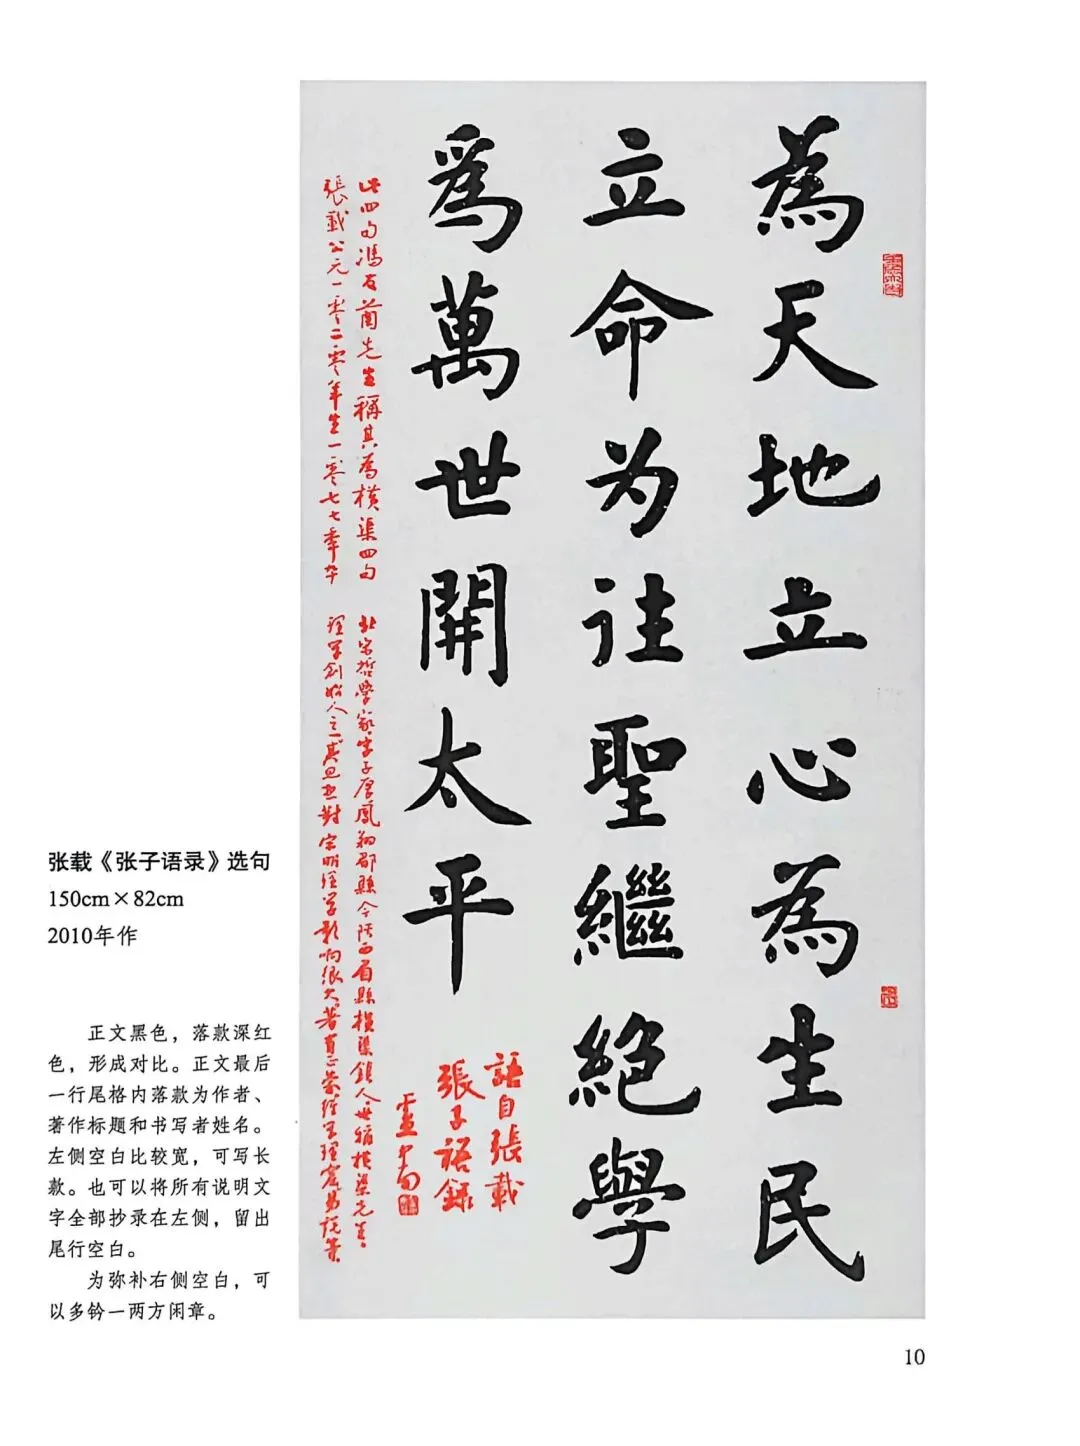 為天地立心為生民
立命为往聖繼絕學
爲萬世開太平
語自張載
張子語錄
此四句馮友蘭先生稱其為横渠四句 北宋哲學家字子厚鳳翔郿縣今陕西眉縣横渠鎮人世稱横渠先生
張載公元一零二零年生一零七七年卒 理学創始人之一其思想對宋明理学影响很大著有正蒙经学理窟易説等
张载《张子语录》选句
150cm×82cm
2010年作
正文黑色，落款深红
色，形成对比。正文最后
一行尾格内落款为作者、
著作标题和书写者姓名。
左侧空白比较宽，可写长
款。也可以将所有说明文
字全部抄录在左侧，留出
尾行空白。
为弥补右侧空白，可
以多钤一两方闲章。
10